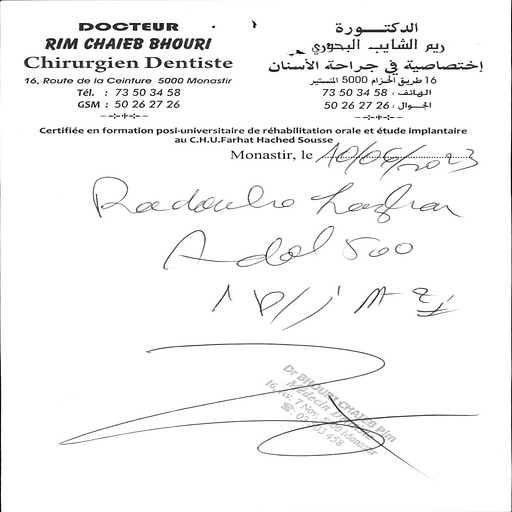 DOCTEUR
RIM CHAIEB BHOURI
Chirurgien Dentiste
16, Route de la Ceinture 5000 Monastir
Tél. : 73 50 34 58
GSM : 50 26 27 26
الدكتـــورة
ريم الشايب البحوري
إختصاصية في جراحة الأسنان
16 طريق الحزام 5000 المنستير
الهاتف : 58 34 50 73
الجـوال : 26 27 26 50
Certifiée en formation posi-universitaire de réhabilitation orale et étude implantaire
au C.H.U.Farhat Hached Sousse
Monastir, le 10/06/2023
Adol 500
Dr BHOURI CHAIEB Rim
Médecin Dentiste
16, Av. 7 Nov. 5000 Monastir